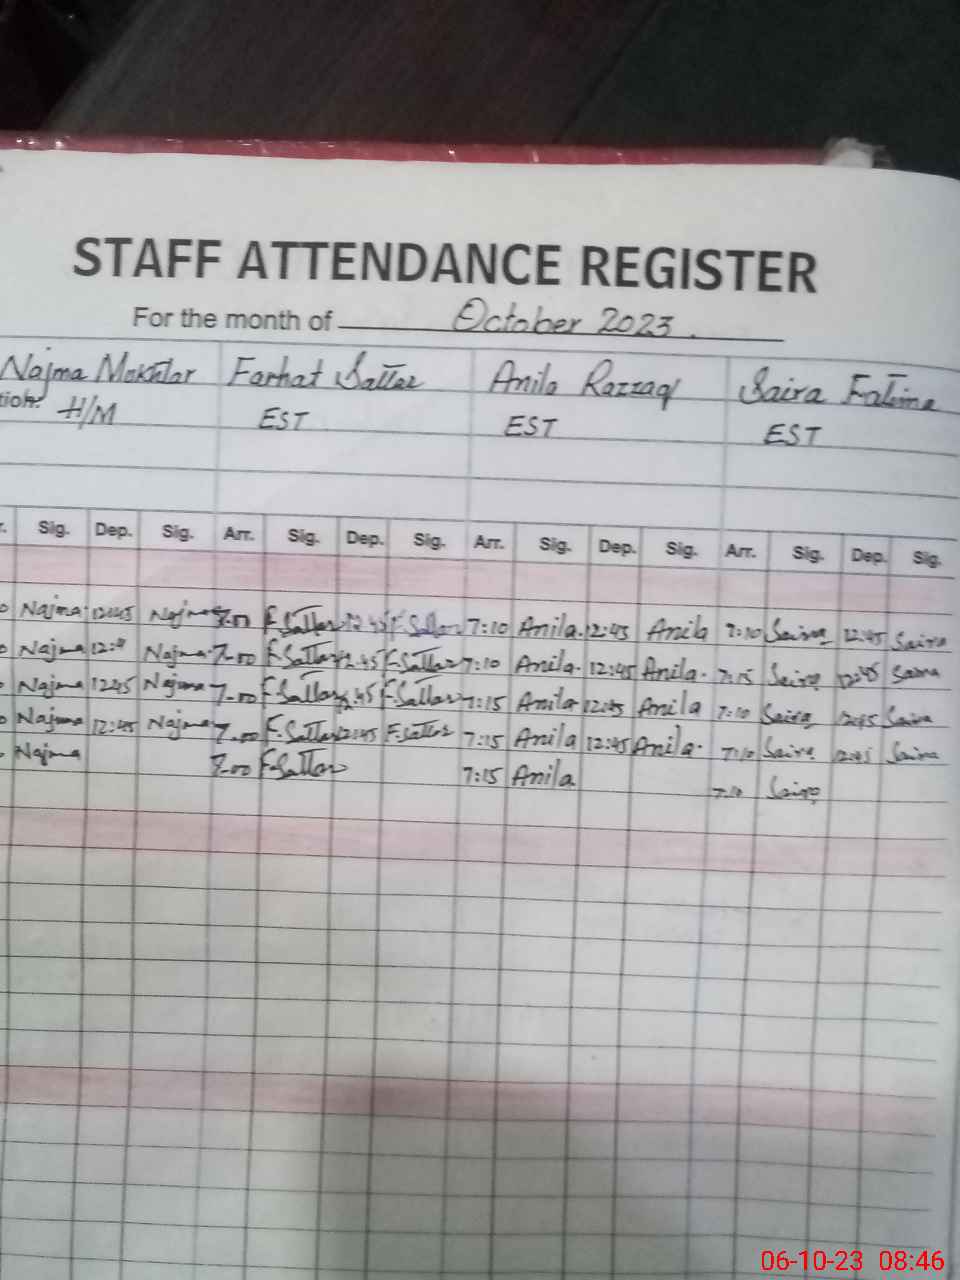 STAFF ATTENDANCE REGISTER
For the month of October 2023.
Najma Mokhtar Farhat Sattar Anila Razzaq Saira Fatima
tion: H/M EST EST EST
r. Sig. Dep. Sig. Arr. Sig. Dep. Sig. Arr. Sig. Dep. Sig. Arr. Sig. Dep. Sig.
Najma 12:45 Najma 7.00 F.Sattar 12:45 F.Sattar 7:10 Anila. 12:45 Anila 7:10 Saira 12:45 Saira
Najma Najma. 7.00 F.Sattar 12.45 F.Sattar 7:10 Anila. 12:45 Anila. 7:15 Saira 12:45 Saira
Najma 12:45 Najma 7.00 F.Sattar 12.45 F.Sattar 7:15 Anila 12:45 Anila 7:10 Saira 12:45 Saira
Najma 12:45 Najma 7.00 F.Sattar 12:45 F.Sattar 7:15 Anila 12:45 Anila. 7:10 Saira 12:45 Saira
Najma 7.00 F.Sattar 7:15 Anila 7:10 Saira
06-10-23 08:46